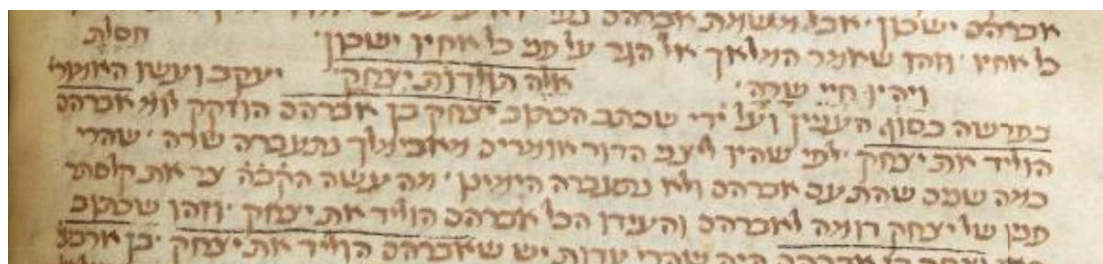 אברהם ישכון · אבל משמת אברהם נפל על
כל אחיו · וזהו שאמר המלאך אל הגר על פני כל אחיו ישכון · חסלת
ויהיו חיי שרה · אלה תולדות יצחק · יעקב ועשו האמור'
בפרשה בסוף העניין ועל ידי שכתב הכתוב יצחק בן אברהם הוזקק לומ' אברהם
הוליד את יצחק · לפי שהיו ליצני הדור אומרים מאבימלך נתעברה שרה · שהרי
כמה שנים שהת עם אברהם ולא נתעברה הימינו · מה עשה הק'ב'ה' צר את קלסתר
פניו של יצחק דומה לאברהם והעידו הכל אברהם הוליד את יצחק · וזהו שכתוב
כאן יצחק בן אברהם היה שהרי עדות יש שאברהם הוליד את יצחק · בן ארבעי'